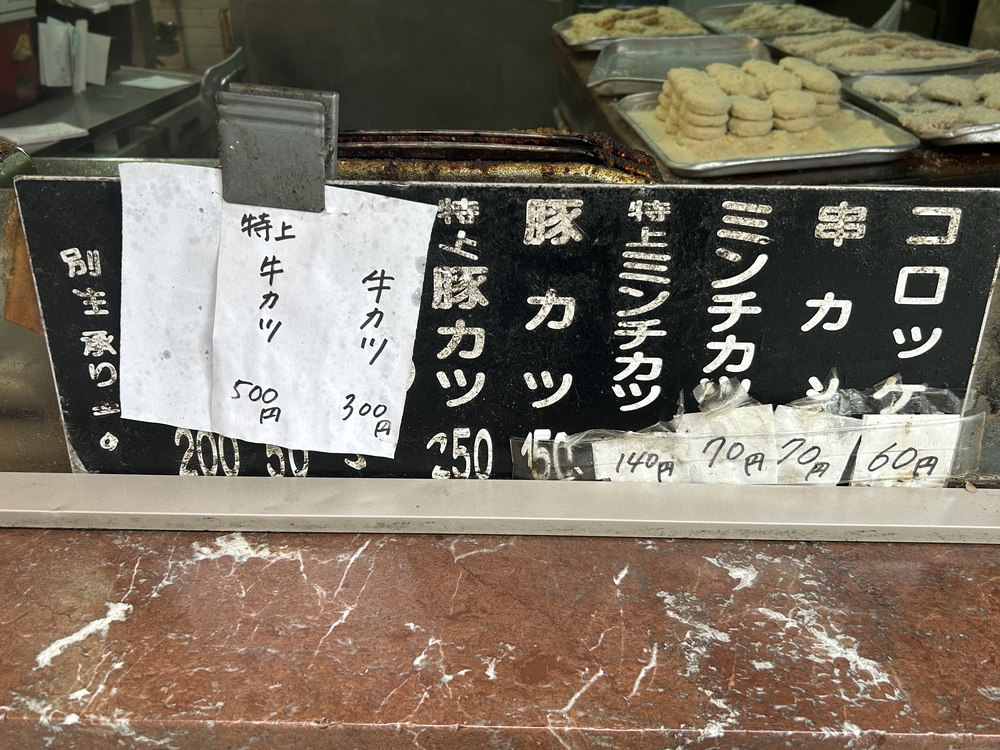 コロッケ 60円
串カツ 70円
ミンチカツ 70円
特上ミンチカツ 140円
豚カツ 150
特上豚カツ 250
牛カツ 300円
特上牛カツ 500円
50
200